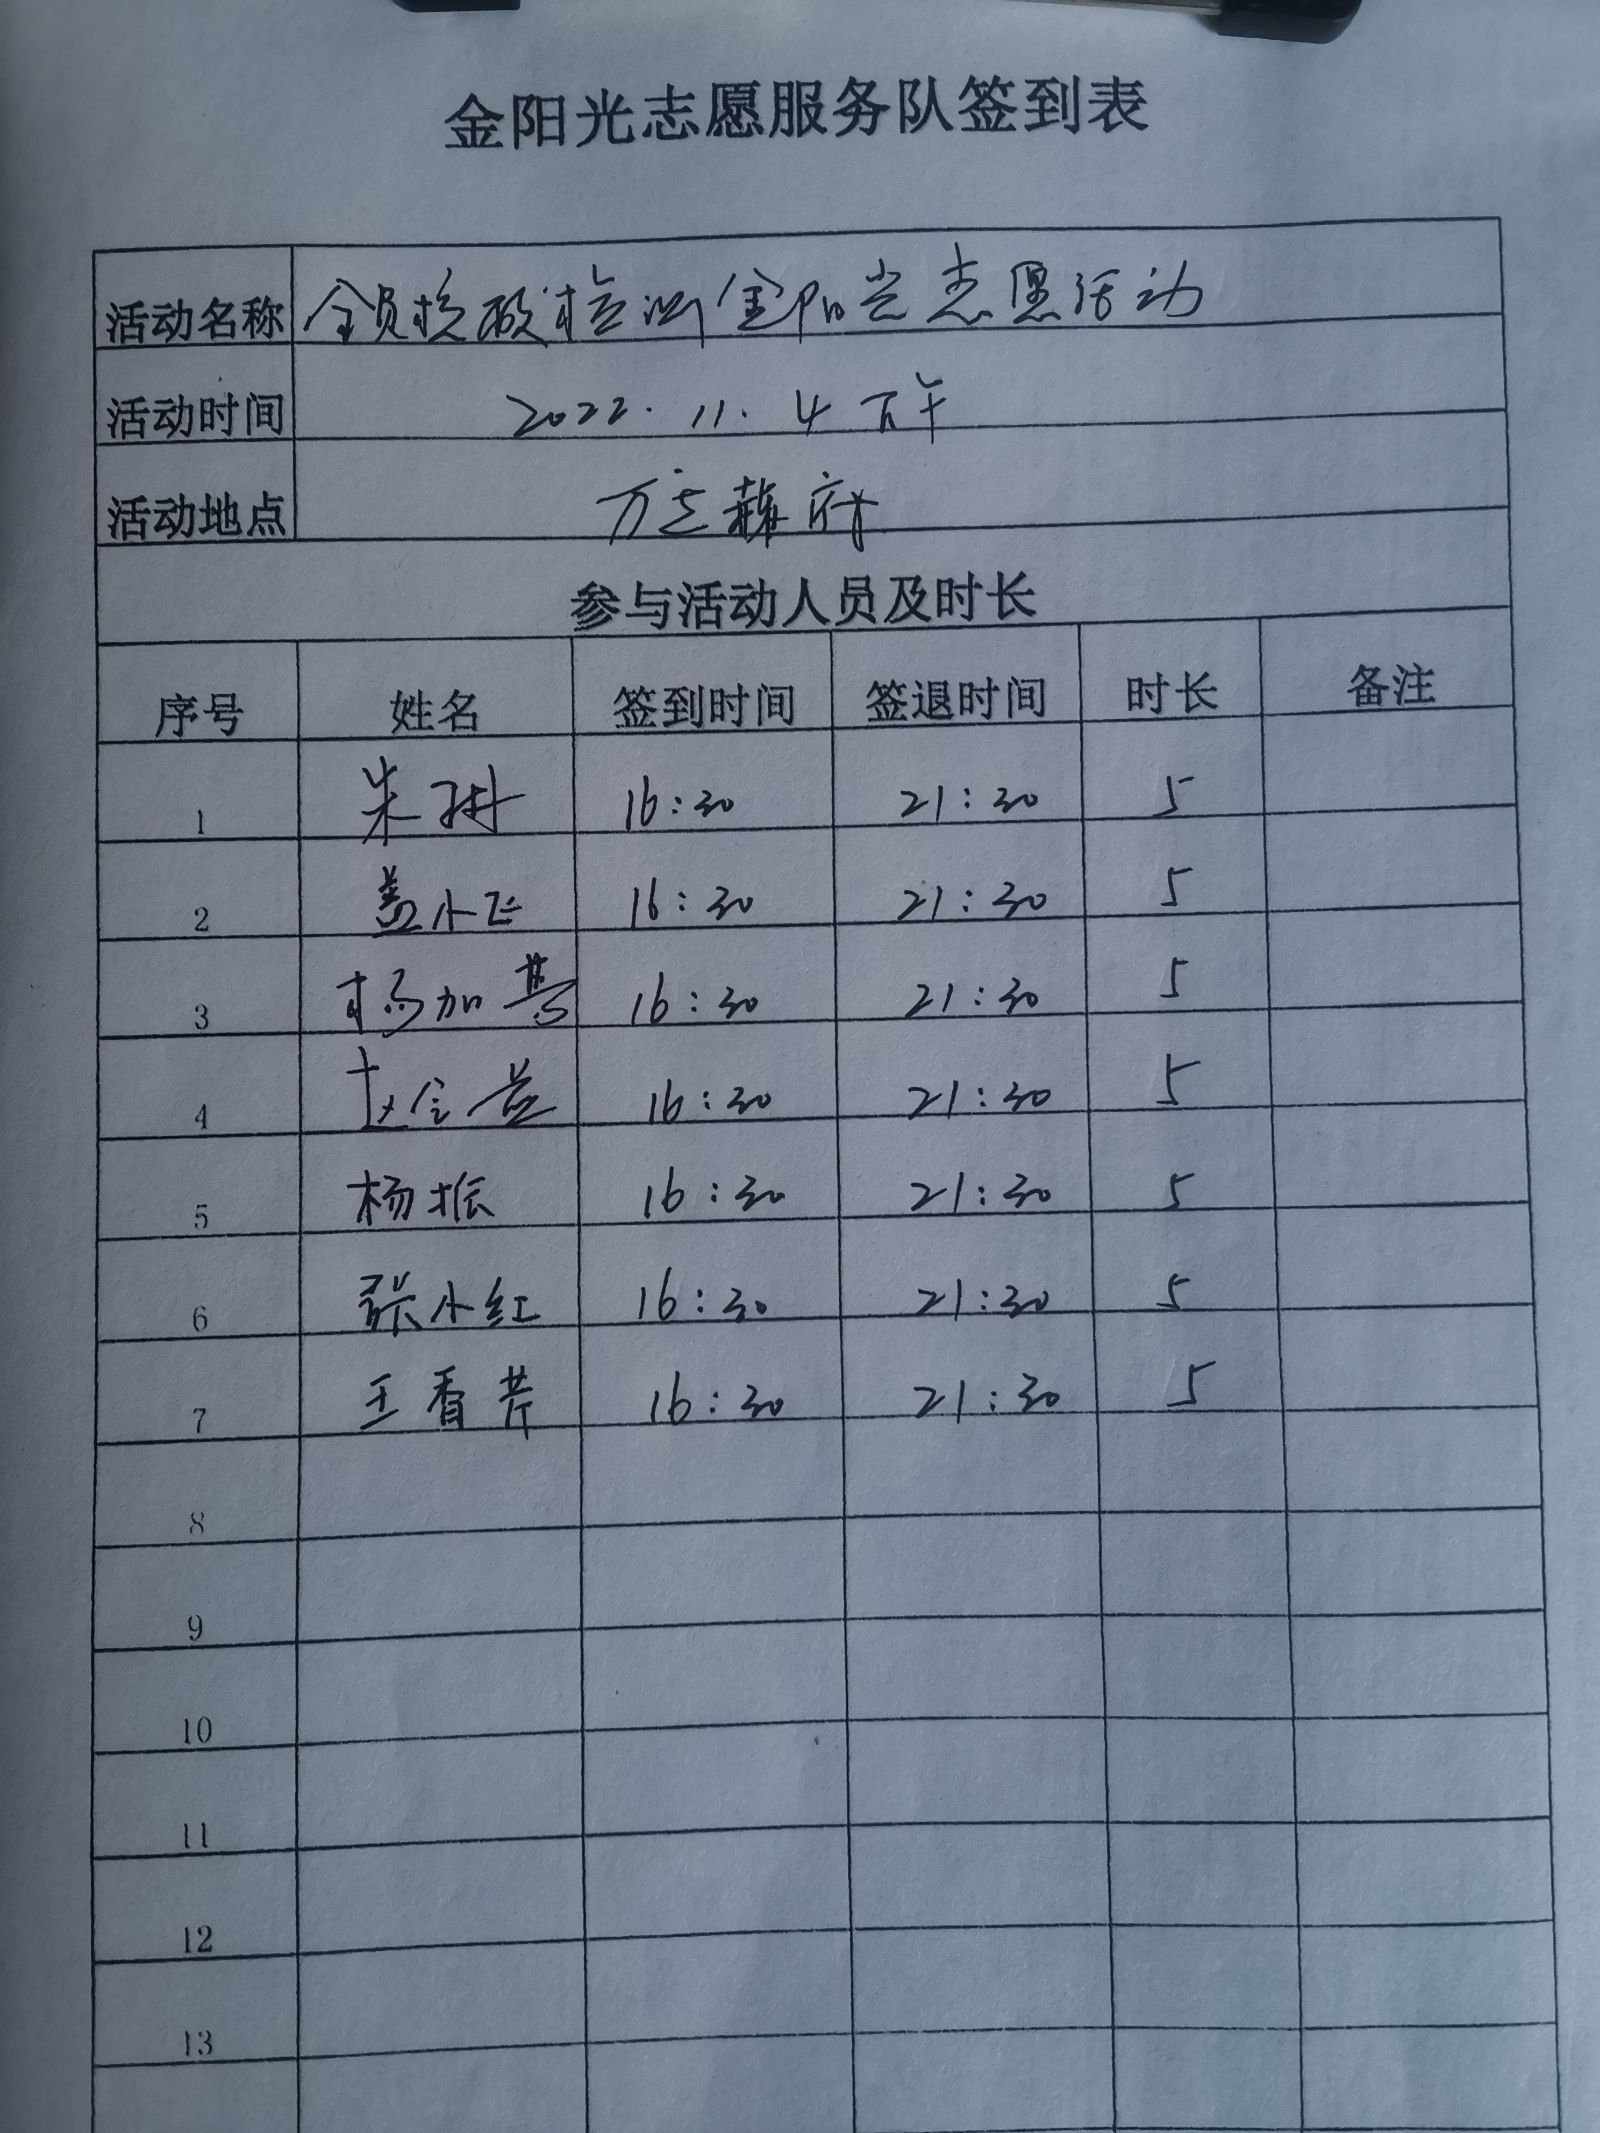 金阳光志愿服务队签到表
活动名称 全员核酸检测金阳光志愿活动
活动时间 2022.11.4下午
活动地点 万
参与活动人员及时长
序号 姓名 签到时间 签退时间 时长 备注
1 朱 16:30 21:30 5
2 盖小飞 16:30 21:30 5
3 杨加梦 16:30 21:30 5
4 赵金 16:30 21:30 5
5 杨振 16:30 21:30 5
6 张小红 16:30 21:30 5
7 王香芹 16:30 21:30 5
8
9
10
11
12
13